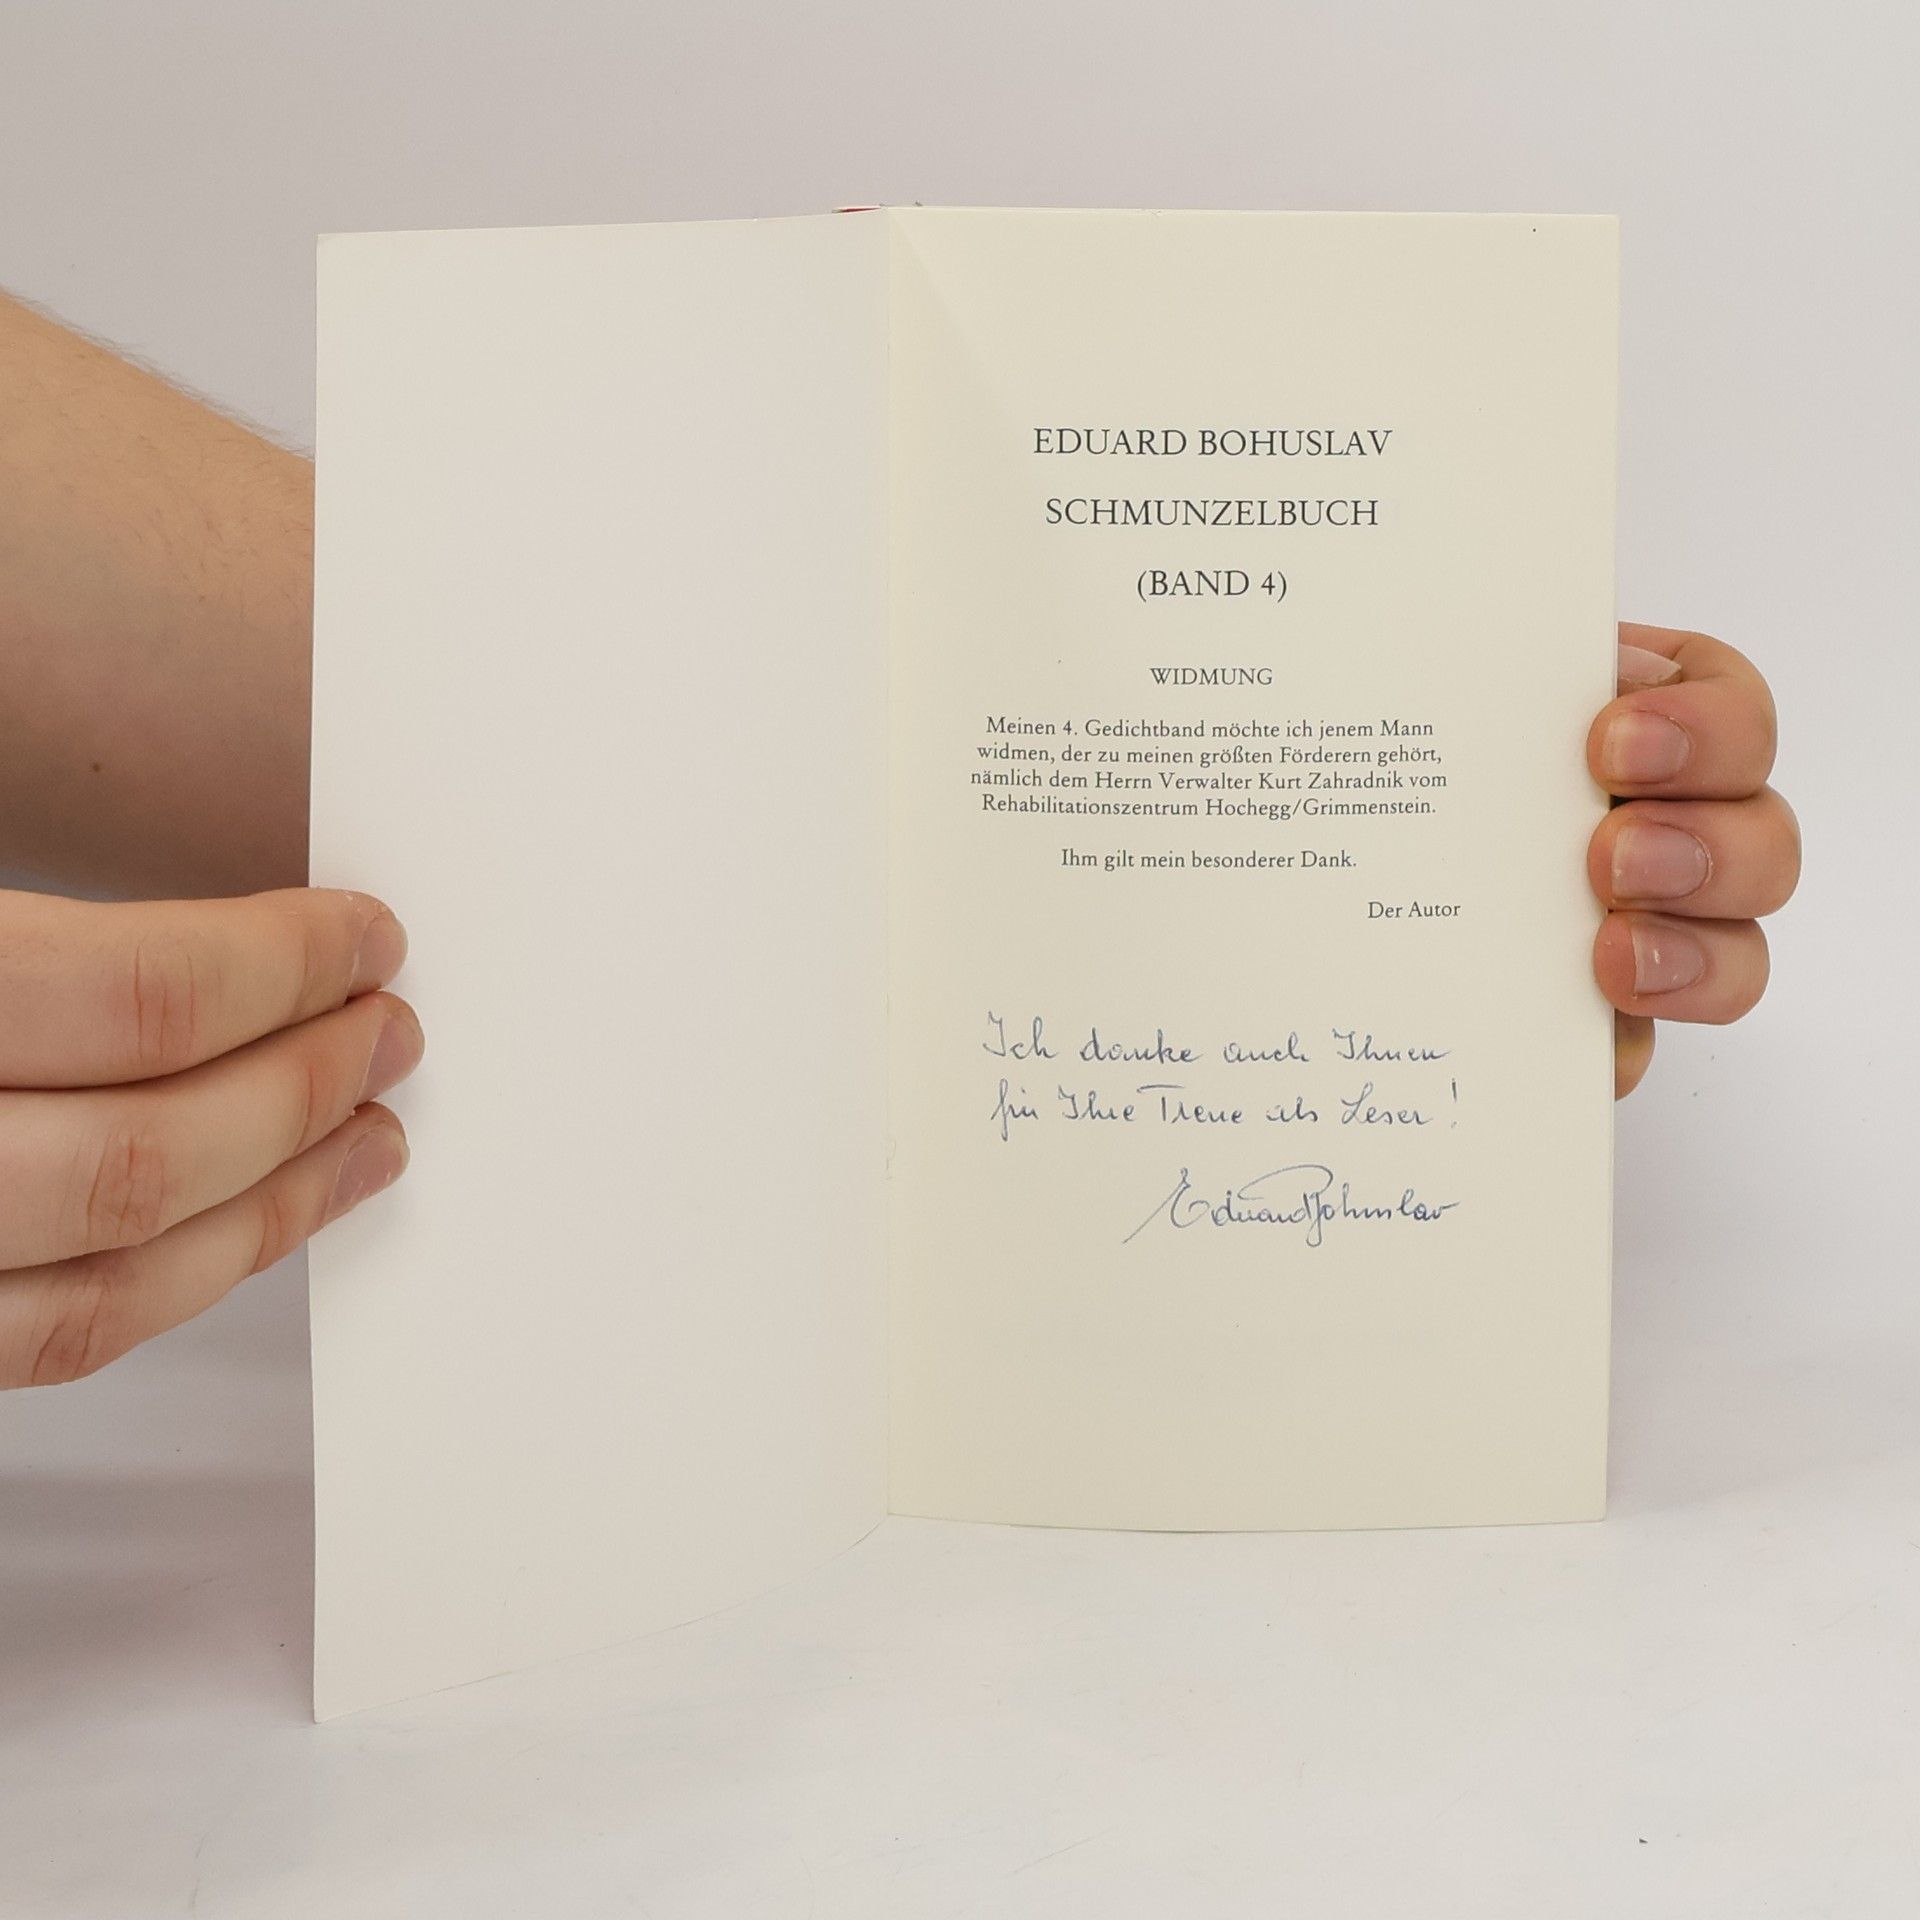 EDUARD BOHUSLAV
SCHMUNZELBUCH
(BAND 4)
WIDMUNG
Meinen 4. Gedichtband möchte ich jenem Mann
widmen, der zu meinen größten Förderern gehört,
nämlich dem Herrn Verwalter Kurt Zahradnik vom
Rehabilitationszentrum Hochegg/Grimmenstein.
Ihm gilt mein besonderer Dank.
Der Autor
Ich danke auch Ihnen
für Ihre Treue als Leser!
Eduard Bohuslav